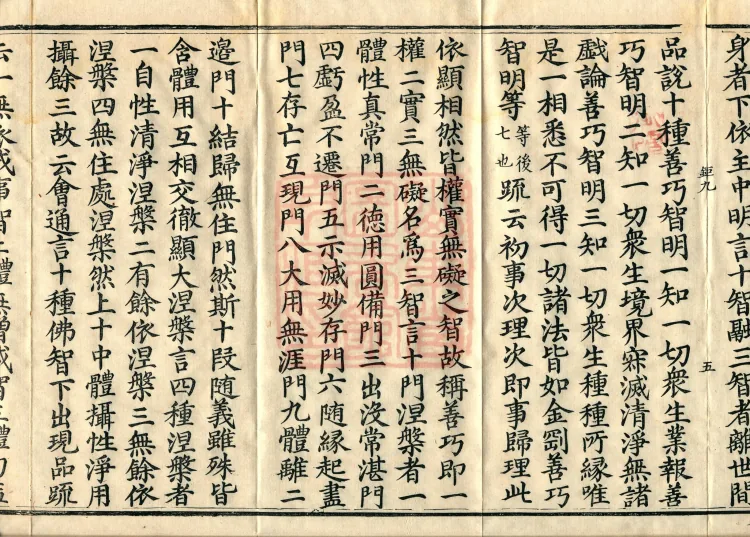 身者下依主中明言十智融三智者離世間
品說十種善巧智明一知一切衆生業報善
巧智明二知一切衆生境界寂滅清淨無諸
戲論善巧智明三知一切衆生種種所緣唯
是一相悉不可得一切諸法皆如金剛善巧
智明等等後七也䟽云初事次理次即事歸理此
鉅九
五
依顯相然皆權實無礙之智故稱善巧即一
權二實三無礙名爲三智言十門涅槃者一
體性真常門二德用圓備門三出沒常湛門
四虧盈不遷門五示滅妙存門六隨緣起盡
門七存亡互現門八大用無涯門九體離二
邊門十結歸無住門然斯十段隨義雖殊皆
含體用互相交徹顯大涅槃言四種涅槃者
一自性清淨涅槃二有餘依涅槃三無餘依
涅槃四無住處涅槃然上十中體攝性淨用
攝餘三故云會通言十種佛智下出現品䟽
云一無依成事智二體無增減智三體均益